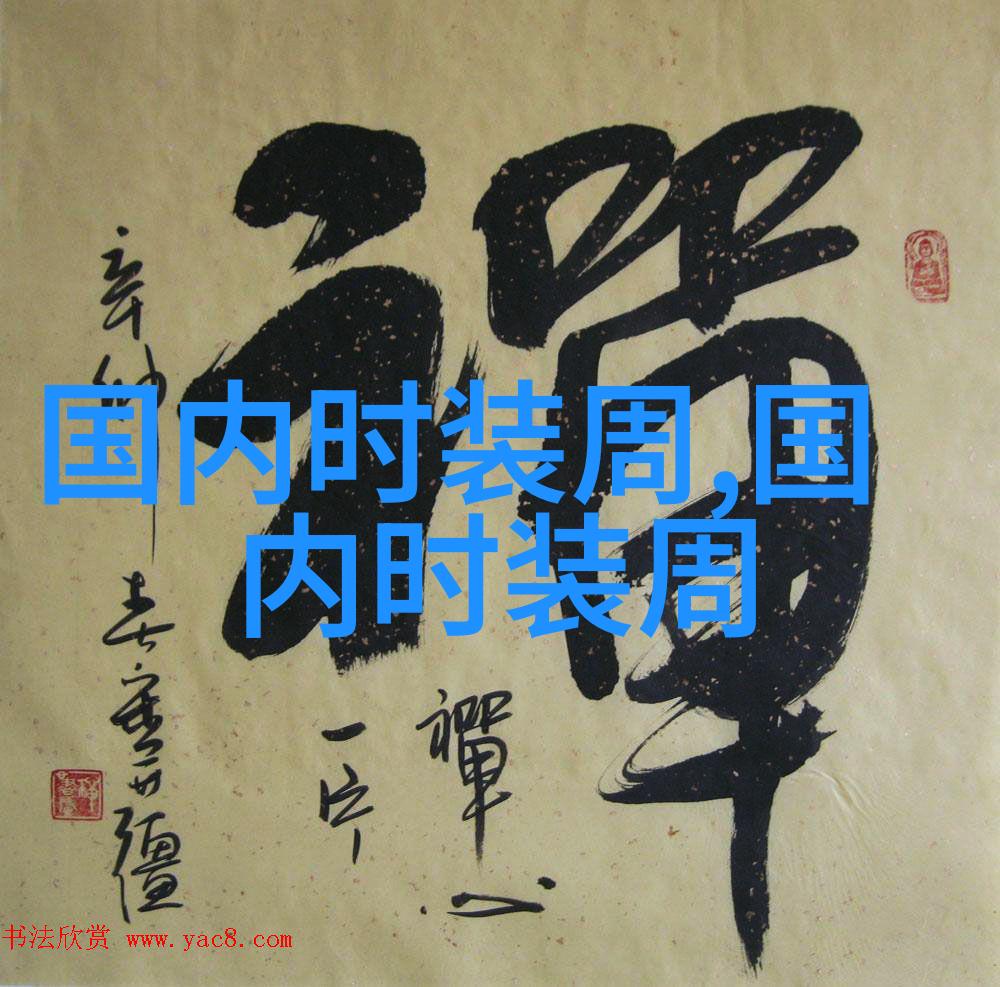 禪
禪心
一片
辛卯
春
国内时装周,国
内时装周
书法欣赏 www.yac8.com